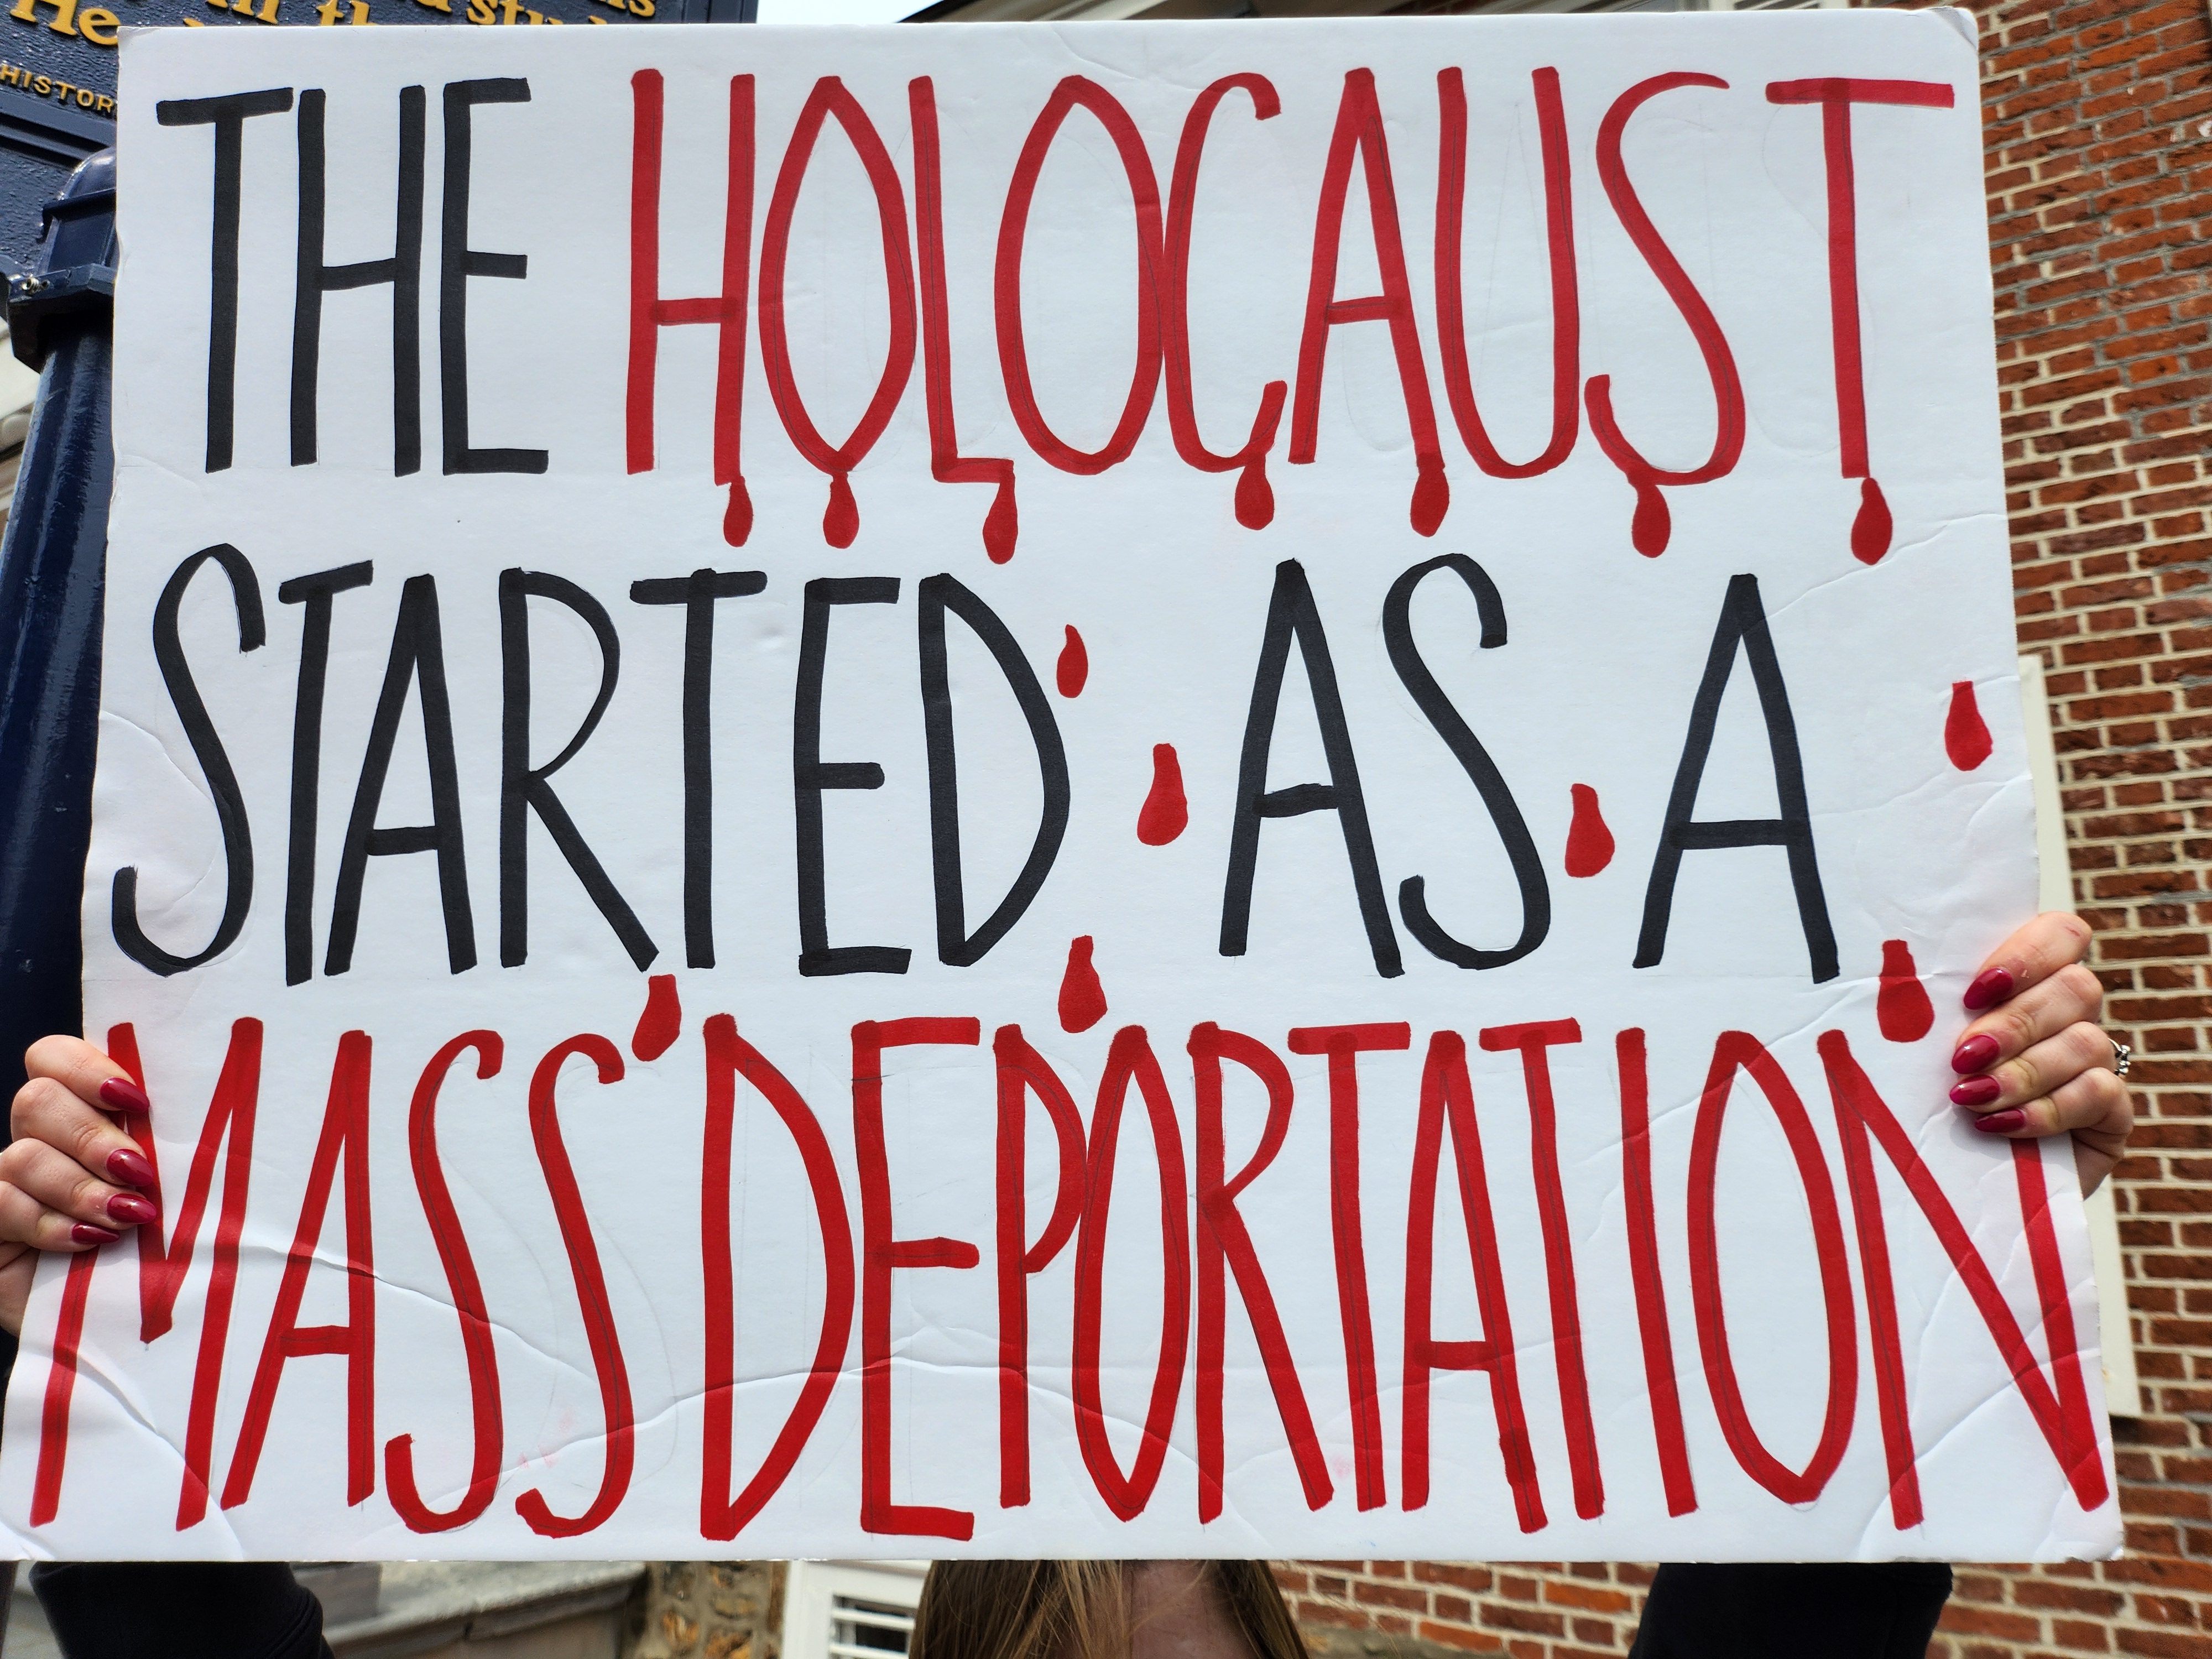 He
HISTOR
THE HOLOCAUST
STARTED AS A
MASS DEPORTATION